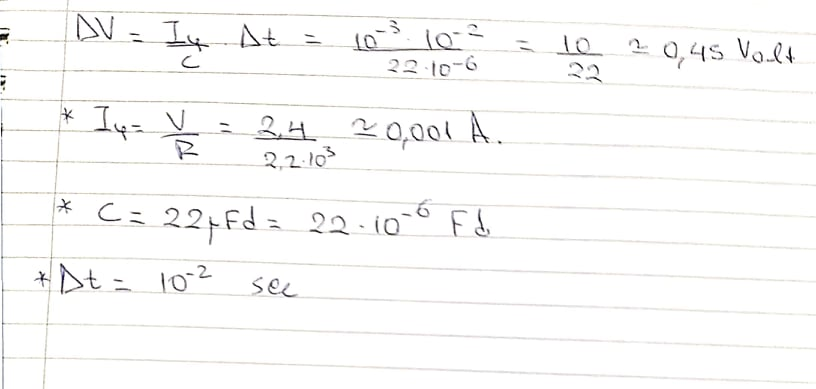 ΔV = I₄/C · Δt = 10⁻³ · 10⁻²/22·10⁻⁶ = 10/22 ≃ 0,45 Volt
* I₄ = V/R = 2,4/2,2·10³ ≃ 0,001 A.
* C = 22μFd = 22·10⁻⁶ Fd
* Δt = 10⁻² sec